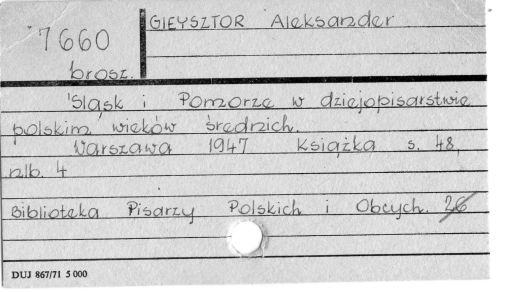 GIEYSZTOR Aleksander
7660
brosz.
Śląsk i Pomorze w dziejopisarstwie
polskim wieków średnich.
Warszawa 1947 Książka s. 48,
nlb. 4
Biblioteka Pisarzy Polskich i Obcych. 26
DUJ 867/71 5 000